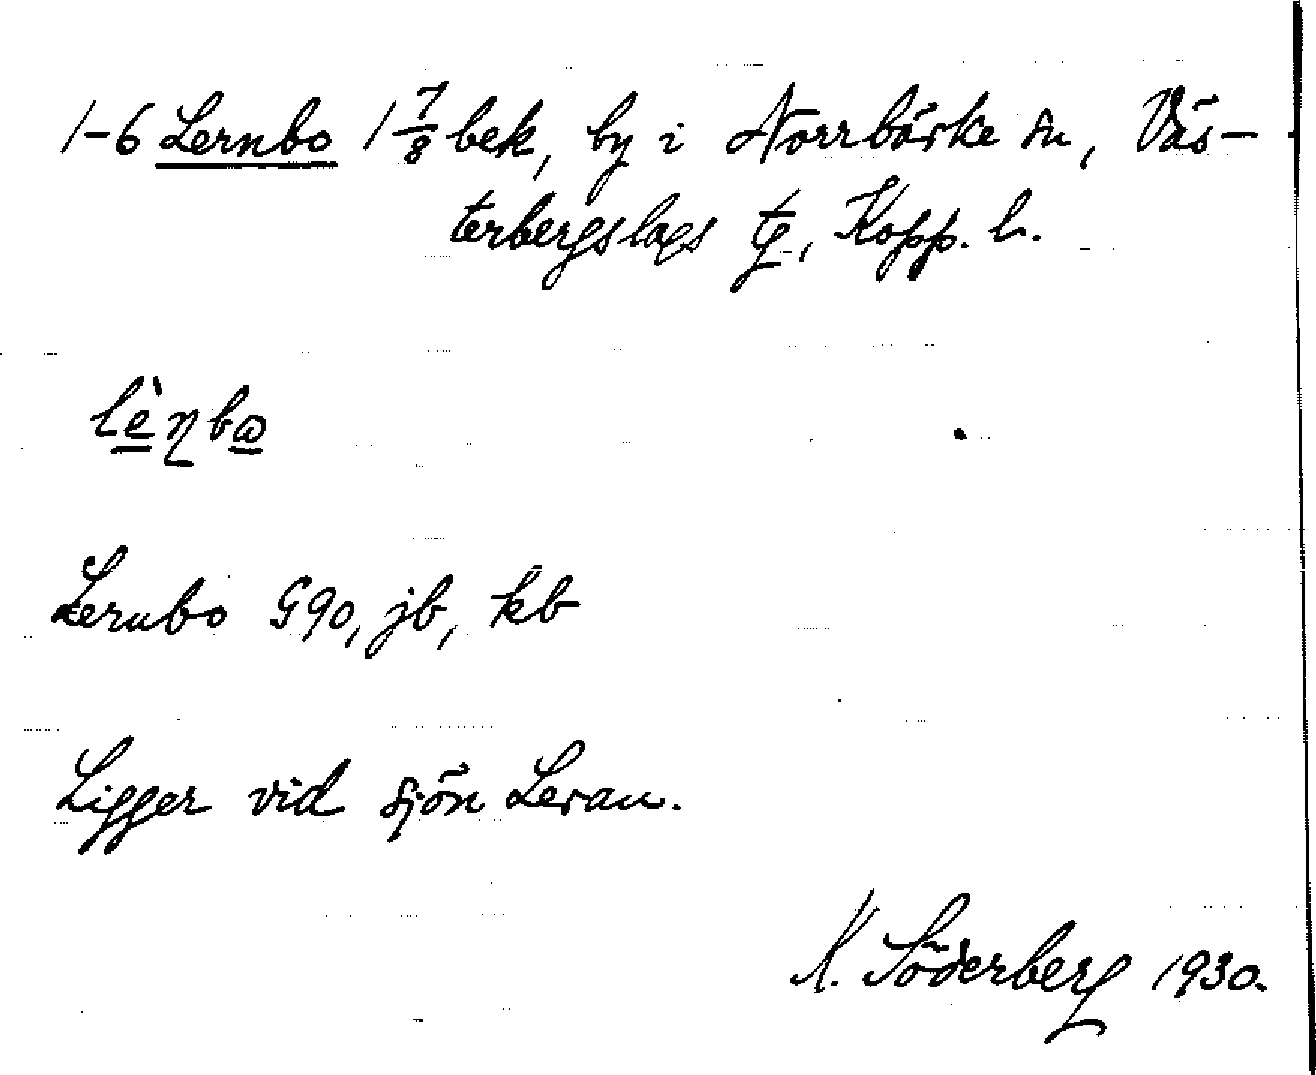 1-6 Lernbo 1 7/8 bek, by i Norrbärke sn, Väs-
terbergslags tg, Kopp. l.
lènbo
Lernbo G90, jb, kb
Ligger vid sjön Leran.
K. Söderberg 1930.